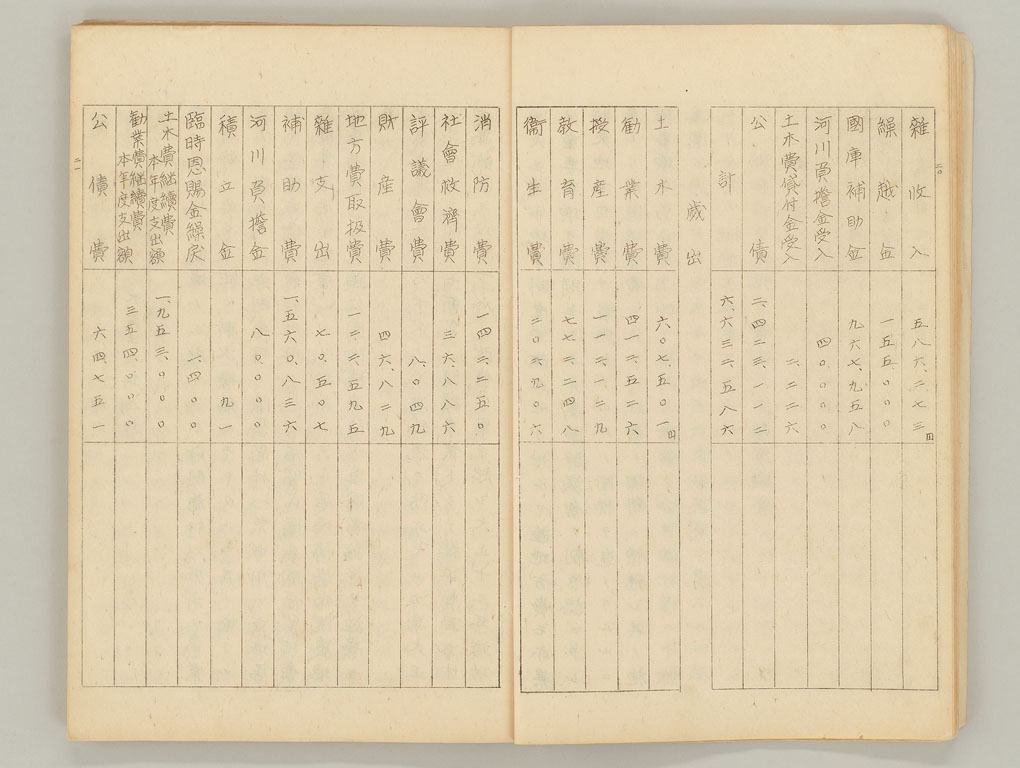 二〇
雜收入 五八六、二七三 円
繰越金 一五五、〇〇〇
國庫補助金 九六七、九五八
河川負擔金受入 四〇、〇〇〇
土木費貸付金受入 二、二二六
公債 二、四二三、一一二
計 六、六三二、五八六
歲出
土木費 六〇七、五〇一 円
勸業費 四一二、五二六
授産費 一一二、一二九
敎育費 七七二、二四八
衞生費 二〇二、九〇六
消防費 一四二、二五〇
社會救濟費 三六、八八六
評議會費 八、〇四九
財産費 四六、八二九
地方費取扱費 一二二、五九五
雜支出 七〇、五〇七
補助費 一、五六〇、八三六
河川負擔金 八〇、〇〇〇
積立金 九一
臨時恩賜金繰戾 一、四〇〇
土木費繼續費本年度支出額 一、九五三、〇〇〇
勸業費繼續費本年度支出額 三五四、〇〇〇
公債費 六四、七五一
二一